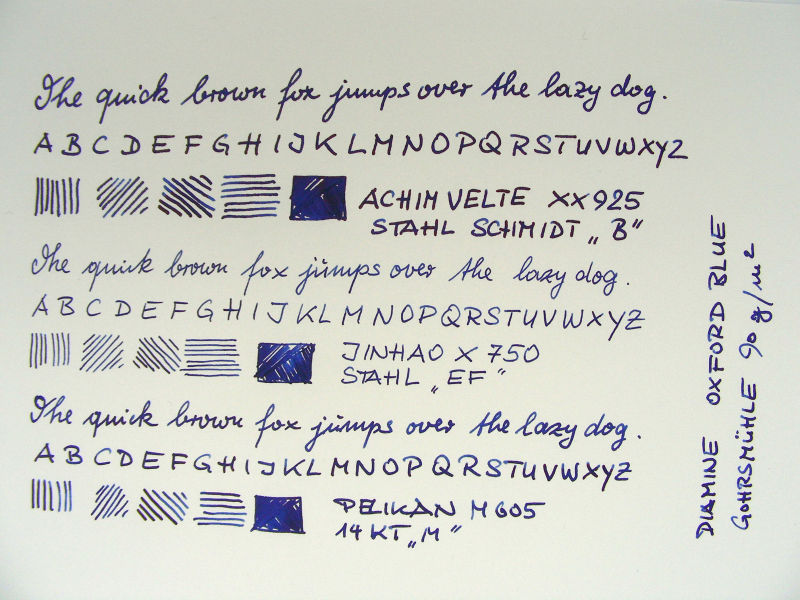 The quick brown fox jumps over the lazy dog.
A B C D E F G H I J K L M N O P Q R S T U V W X Y Z
ACHIM VELTE XX925
STAHL SCHMIDT „B“
The quick brown fox jumps over the lazy dog.
A B C D E F G H I J K L M N O P Q R S T U V W X Y Z
JINHAO X 750
STAHL „EF“
The quick brown fox jumps over the lazy dog.
A B C D E F G H I J K L M N O P Q R S T U V W X Y Z
PELIKAN M605
14 KT „M“
DIAMINE OXFORD BLUE
GOHRSMÜHLE 90 g/m²